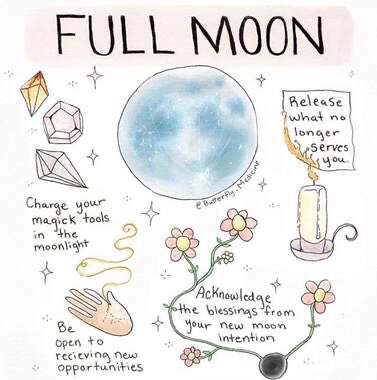 FULL MOON
Release
what no
longer
serves
you.
@Butterfly.Medicine
Charge your
magick tools
in the
moonlight
Acknowledge
the blessings from
your new moon
intention
Be
open to
recieving new
opportunities